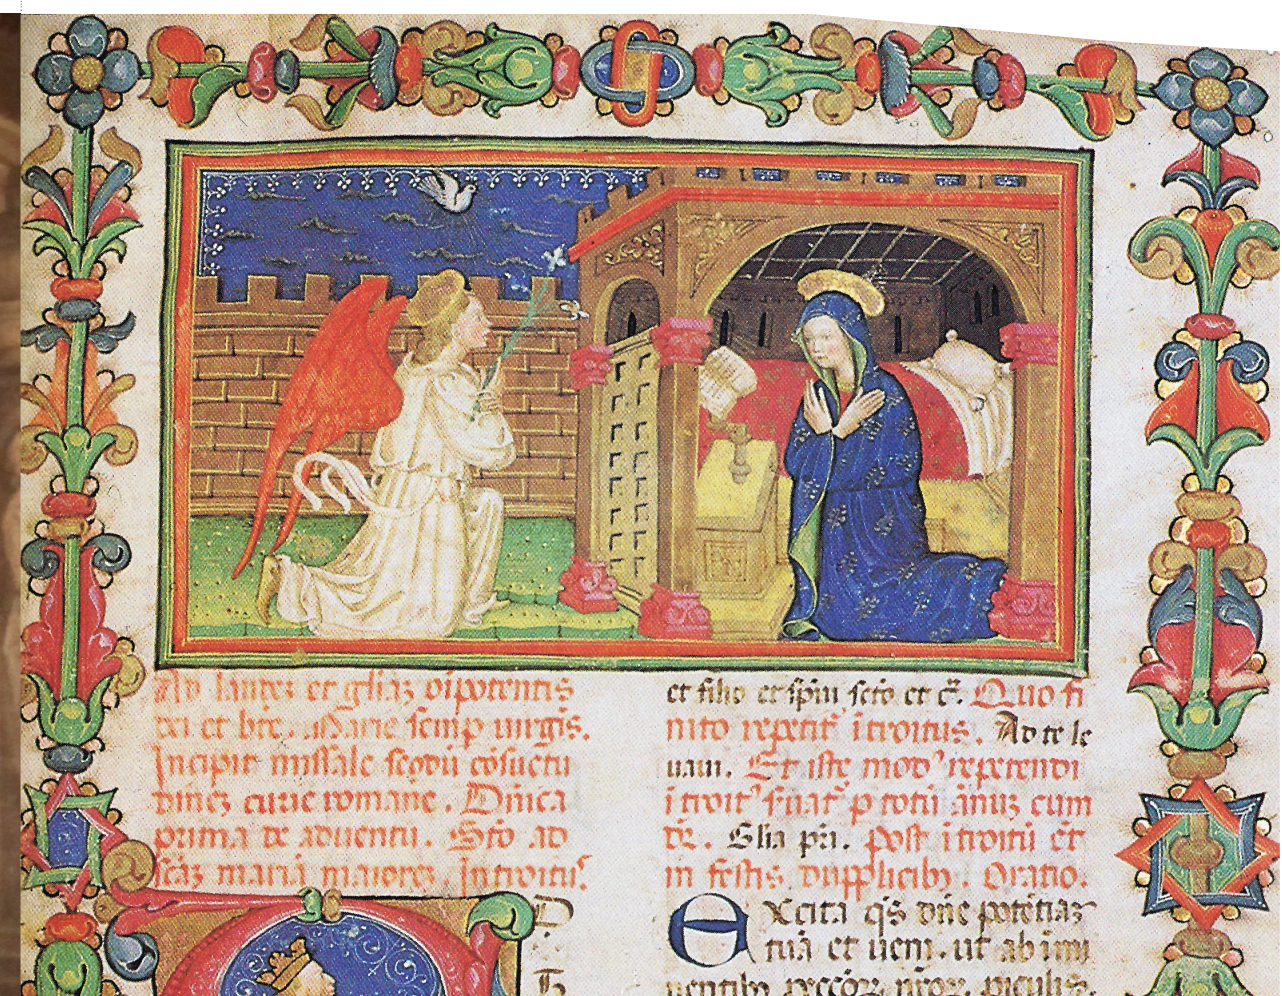 Ad laudez et gliaz oipotentis
dei et bte. Marie semp uirgis.
Incipit missale scdou cosuetu
dinez curie romane. Dnica
prima de aduentu. Sto ad
scaz mariā maiorez. Introitus.
D
H
et filio et spiui scto et c. Quo fi
nito repetit itroitus. Ad te le
uaui. Et iste mod' repetendi
itroit' s'uat' p totū ānuz cum
dr. Glia pri. post itroitū et
in festis dupplicibz. Oratio.
Excita qs dne potētiaz
tuā et ueni. ut ab īmi
nentibz peccoꝝ nroꝝ piculis.